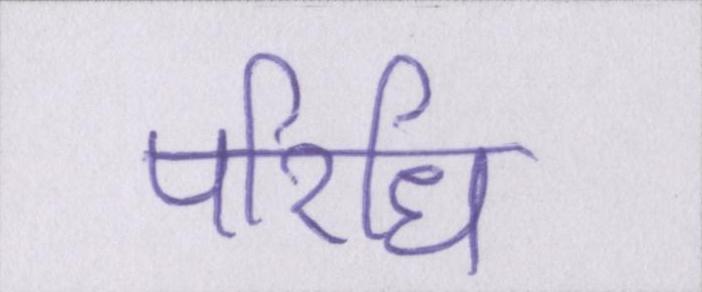 परिधि